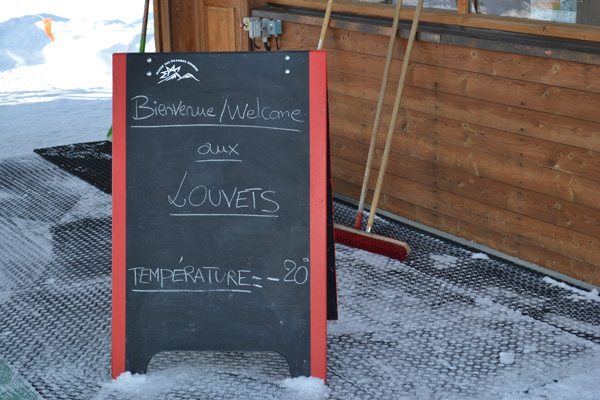 Bienvenue/Welcome
aux
LOUVETS
TEMPÉRATURE = -20°